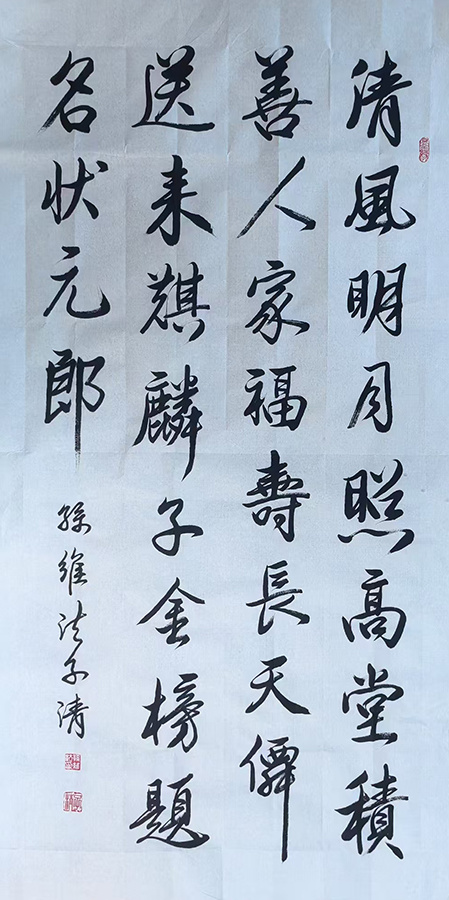 清風明月照高堂積
善人家福壽長天僊
送来麒麟子金榜題
名状元郎
孫維法子清